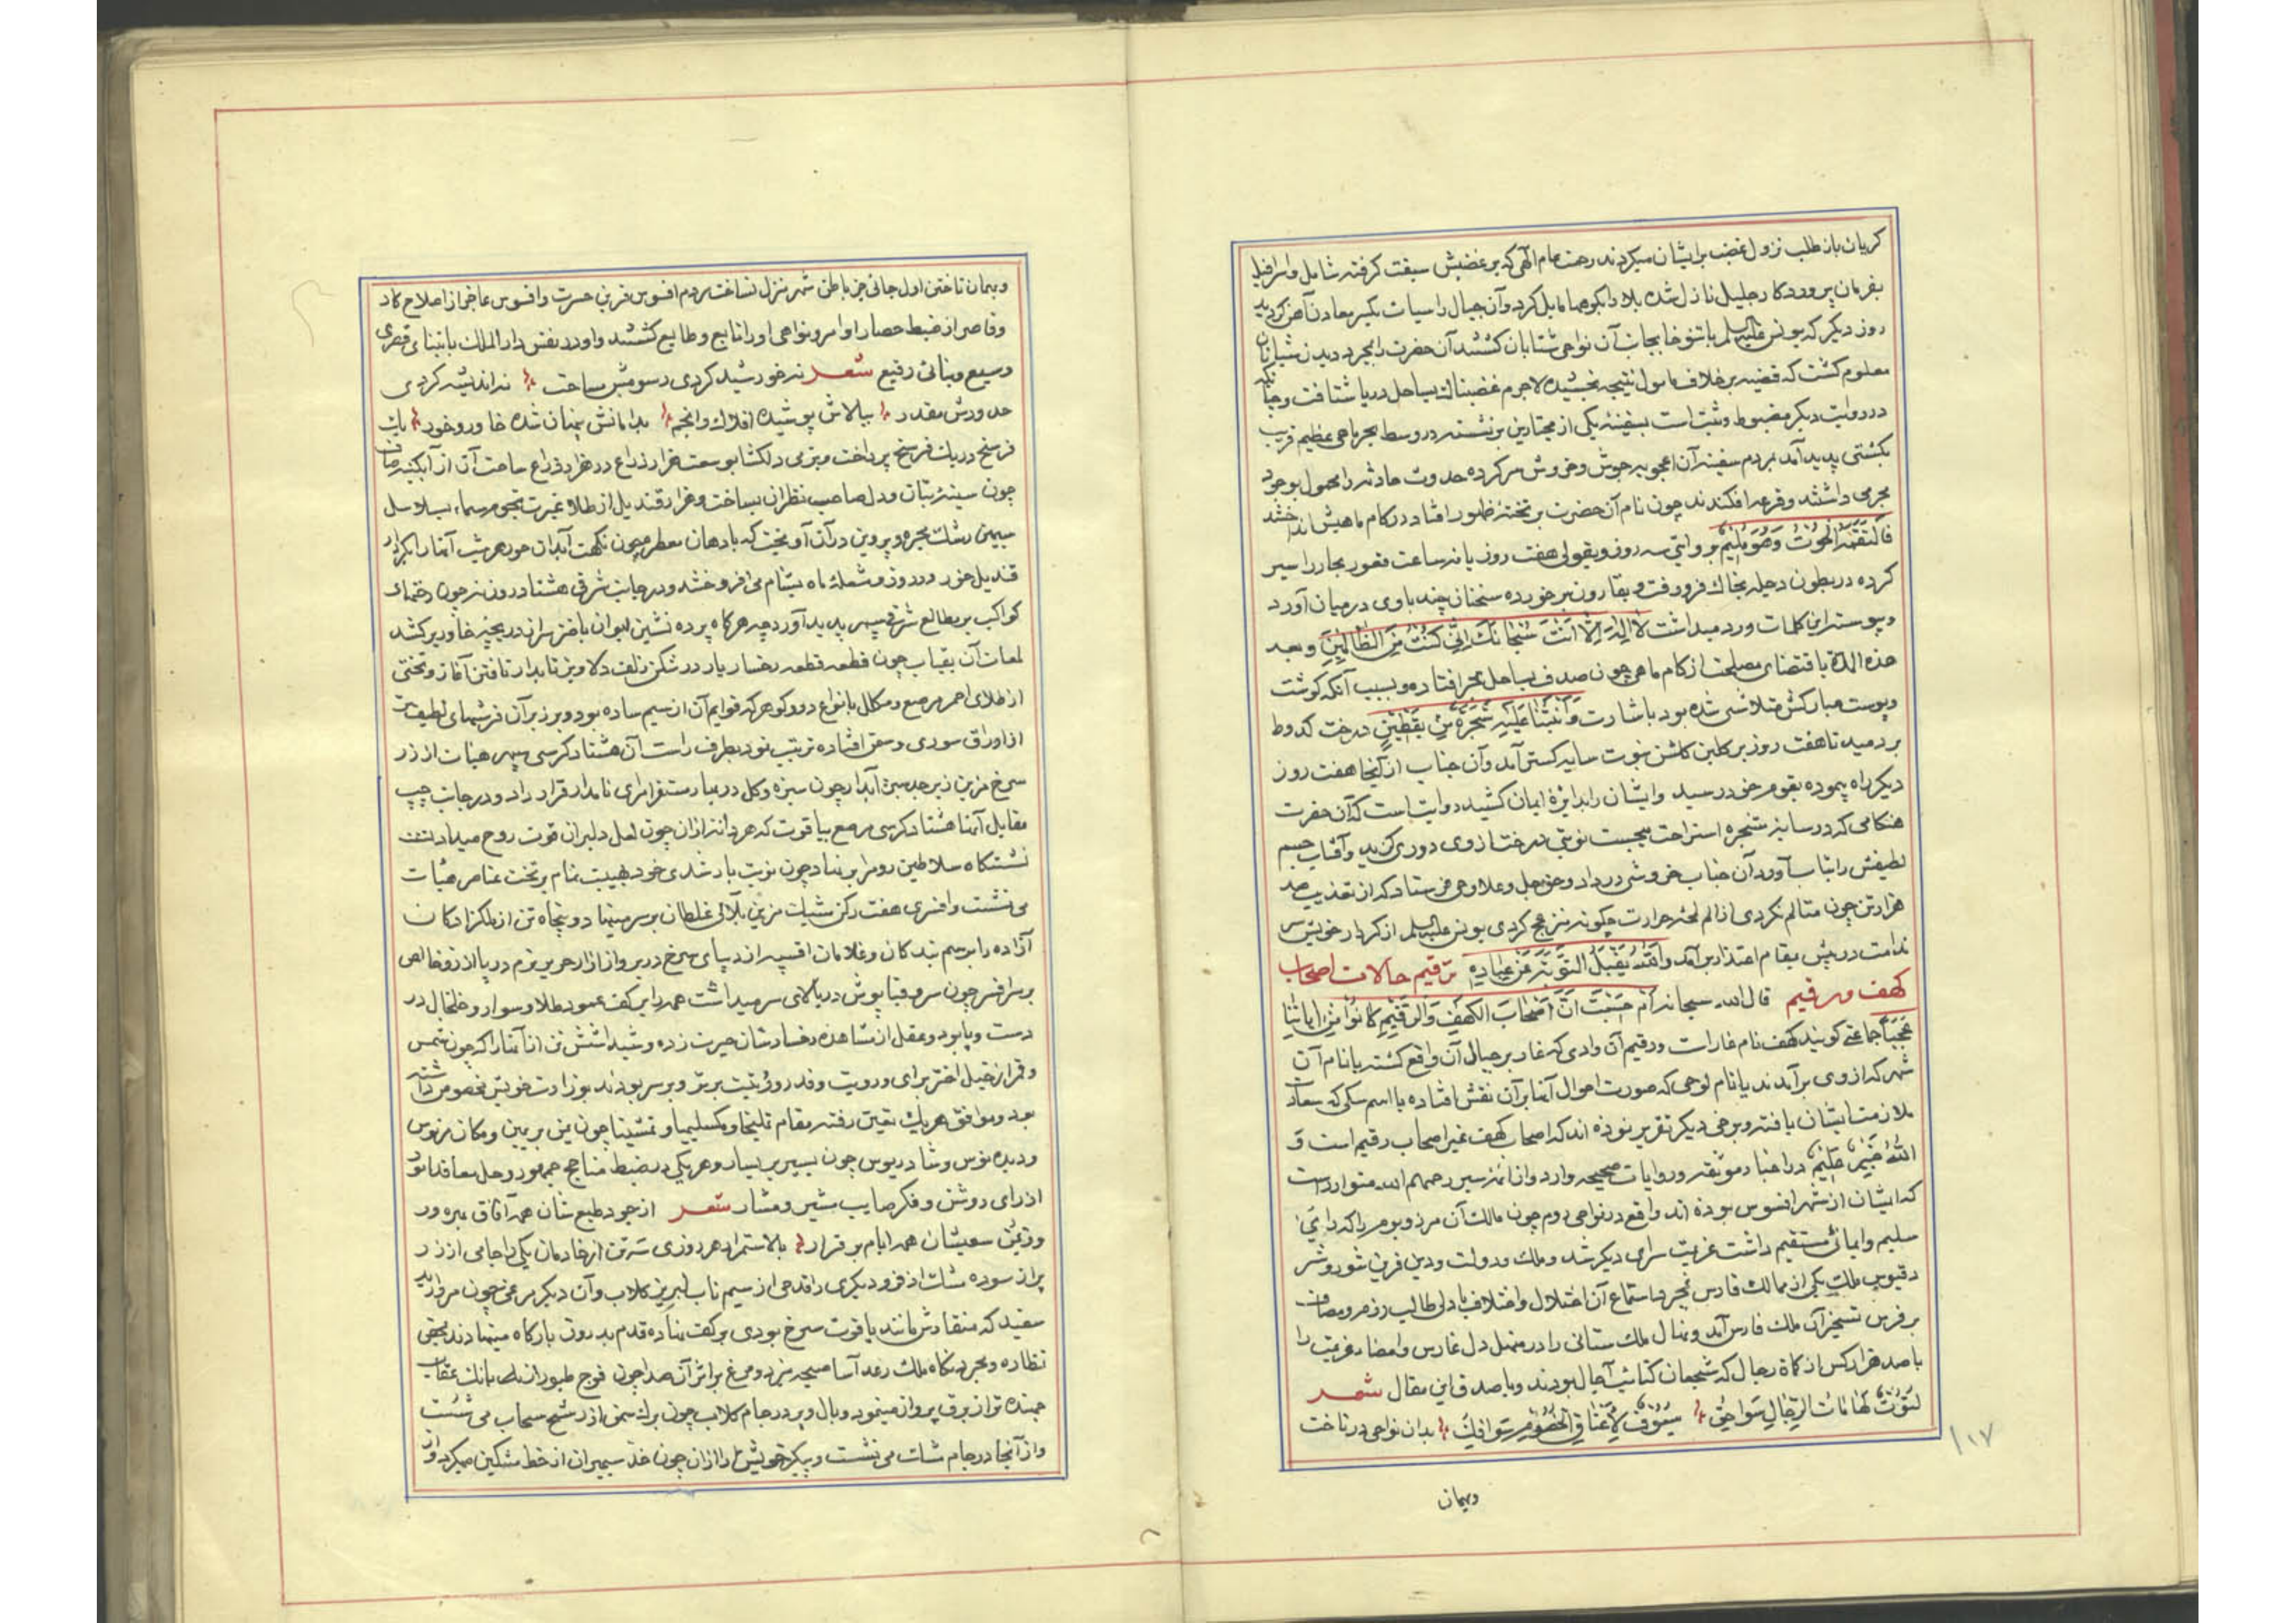 کریان باز طلب نزول غضب برایشان میکردند رحمت عام الهی که بر غضبش سبقت کرفته شامل
بفرمان پروردکار جلیل نازل شده بلا دابکوهها مایل کرد وآن جبال را سیات یکسر معادن آهن کردید
روز دیکر که یونس علیه السلم بجانب آن نواحی شتابان کشتند آن حضرت را بمجرد دیدن
معلوم کشت که قضیه بر خلاف مامول نتیجه بخشیده لاجرم غضبناک بساحل دریا شتافت و
در روایت دیکر مضبوط و ثبت است بسفینه یکی از مجتازین بر نشسته در وسط بحر ماهی عظیم قریب
بکشتی پدید آمد مردم سفینه از آن اعجوبه جوش وخروش سر کرده حدوث حادثه را محمول بوجود
مجرمی داشتند وقرعه افکندند چون نام آن حضرت بر تخته ظهور افتاد در کام ماهیش
فَالْتَقَمَهُ الْحُوتُ وَهُوَ مُلِيمٌ بروایتی سه روز وبقولی هفت روز یا نه ساعت قعور بحار را سیر
کرده در بطون دجله بخاک فرو رفت وبقارون بر خورده سخنان چند باوی در میان آورد
وپیوسته این کلمات ورد میداشت لا اله الا انت سبحانک انی کنت من الظالمین وبعد
هذه المدة باقتضای مصلحت از کام ماهی چون صدف بساحل بحر افتاد وبسبب آنکه کوشت
وپوست مبارکش متلاشی شده بود باشارت وَأَنْبَتْنَا عَلَيْهِ شَجَرَةً مِنْ يَقْطِينٍ درخت کدو
بر دمید تا هفت روز بر کلبن کلشن نبوت سایه کستر آمد وآن جناب از آنجا هفت روز
دیکر راه پیموده بقوم خود رسید وایشان را بدایرۀ ایمان کشید روایت است که آن حضرت
هنکامی که در سایه شجره استراحت میجست نوبتی درخت از وی دوری کزید وآفتاب جسم
لطیفش را بتاب آورد آن جناب خروشی در داد وحق جل وعلا وحی فرستاد که از تعذیب صد
هزار تن چون متالم نکردی از الم لمحه حرارت چکونه منزعج کردی یونس علیه السلم از کردار خویش سر
ندامت در پیش بمقام اعتذار بر آمد والله یقبل التوبة عن عباده ترقیم حالات اصحاب
کهف ورقیم قال الله سبحانه ام حسبت ان اصحاب الکهف والرقیم کانوا من ایاتنا
عجبا جماعتی کویند کهف نام غار است ورقیم آن وادی که غار بر جبال آن واقع کشته یا نام آن
شهر که از وی بر آمدند یا نام لوحی که صورت احوال آنها بر آن نقش افتاده یا اسم سکی که سعادت
ملازمت ایشان یافته وبرخی دیکر تقریر نموده اند که اصحاب کهف غیر اصحاب رقیم است و
الله خبیر علیم در اخبار موثقه وروایات صحیحه وارد واز ائمه سیر رحمهم الله متوارد است
که ایشان از شهر افسوس بوده اند واقع در نواحی روم چون مالک آن مرز وبوم را که رایی
سلیم وایمانی مستقیم داشت عزیمت سرای دیکر شد وملک ودولت ودین قرین شور وشر
دقیوس ملک یکی از ممالک فارس بمجرد استماع آن اختلال واختلاف با دلی طالب رزم ومصاف
بر فرس تسخیر آن ملک فارس آمد ونهال ملک ستانی را در منهل دل غارس وامضاء عزیمت را
با صد هزار کس از کماة رجال که شجعان کتائب آجال بودند وبا صدق این مقال شعر
لیوث لهامات الرجال سواحق سیوف لاعناق الخصوم بدان نواحی در تاخت
وبهمان
۱۰۷
وبهمان تاختن اول جائی جز باطن شهر منزل نساخت مردم افسوس قرین حسرت وافسوس عاجز از اصلاح کار
وقاصر از ضبط حصار اوامر ونواهی او را تابع وطایع کشتند واو در نفس دار الملک بابتنای قصری
وسیع وبنائی رفیع شعر نه خورشید کردی رسومش مساحت نه اندیشه کردی
حدودش مقدر ببالاش پوشیده افلاک وانجم بدامانش پنهان شده خاور وخور یک
فرسخ در یک فرسخ پرداخت وبزمی دلکشا بوسعت هزار ذراع در هزار ذراع ساحت آن از آبکینه صاف
چون سینۀ بتان ودل صاحب نظران بساخت وهزار قندیل از طلا غیرت نجوم سماء بسلاسل
سیمین رشک مجره وپروین در آن آویخت که بادهان معطر همچون نکهت آبدان حور هر شب آنها را بکردار
قندیل خور در روز ومشعلۀ ماه بشام می افروختند ودر جانب شرقی هشتاد روزنه چون
کواکب بر مطالع شرقی سپهر پدید آورد چه هرکاه پرده نشین ایوان باختر سر از دریچه خاور بر کشد
لمعات آن بقباب چون قطعه قطعه رخسار یار در شکن زلف دلاویز تابدار تافتن آغازد وتختی
از طلای احمر مرصع ومکلل بانواع درر وکوهر که قوایم آن از سیم ساده بود وبر زبر آن فرشهای لطیف تر
از اوراق سوری وسمن افتاده ترتیب نمود بطرف راست آن هشتاد کرسی سپهر هیات از زر
سرخ مزین زبرجد سبز آبدار چون سبزه وکل در بهار مستقر امرای نامدار قرار داد ودر جانب چپ
مقابل آنها هشتاد کرسی مرصع بیاقوت که هر دانه از آن چون لعل دلبران قوت روح میداد
نشستکاه سلاطین روم بر نهاد چون نوبت بار شدی خود بهیبت تمام بر تخت عناصر هیات
می نشست وافسری هفت رکن مشبک مزین بلآلی غلطان بر سر مینهاد وپنجاه تن از ملکزادکان
آزاده را برسم بندکان وغلامان اقبیه از دیبای سرخ در بر وازار حریر نرم در پا از زر خالص
بر سر افسر چون سرو قبا پوش در بالای سر میداشت همه را بر کف عمود طلا وسوار وخلخال در
دست وپا بود وعقل از مشاهده رخسارشان حیرت زده وشیدا شش تن از آنها را که چون شمس
وقمر از خیل اختر برای ورویت وقدر ورتبت برتر وبر سر بودند بوزارت خویش مخصوص داشته
بود وموافق هر یک تعیین رفته مقام تملیخا ومکسلیمیا وتمشیا چون یمن بر یمین ومکان مرنوس
ودبرنوس وشاذریوس چون یسیر بر یسار وهر یکی در ضبط مناهج جمهور وحل معاقد امور
از رای روشن وفکر صایب مشیر ومشار شعر از جود طبع شان همه آفاق بهره ور
وز یمن سعیشان همه ایام بر قرار بالاستمرار هر روزی سه تن از خادمان یکی را جامی از زر
پر از سوده مشک اذفر ودیکری را قدحی از سیم ناب لبریز کلاب وآن دیکر مرغی چون مروارید
سفید که منقارش مانند یاقوت سرخ بودی بر کف نهاده قدم بدرون بارکاه مینهادند
نظاره وبمجرد نکاه ملک رعد آسا صیحه میزد ومرغ بر اثر آن صدا چون فوج طیور از بانک عقاب
جهنده تر از برق پرواز مینمود وبال وپر در جام کلاب چون برک سمن از رشح سحاب می شست
واز آنجا در جام مشک می نشست وپیکر خویش را از آن چون خد سیمبران از خط مشکین میکرد واز